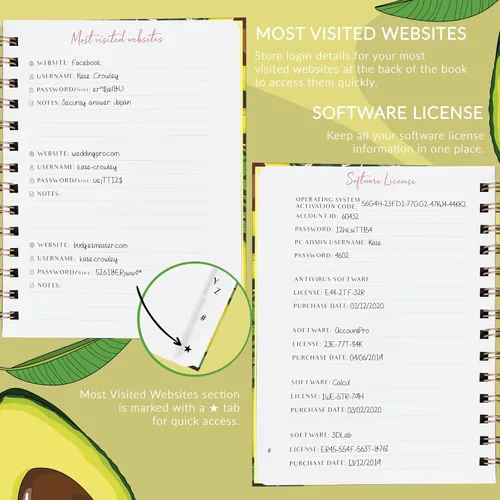 Most visited websites
WEBSITE: Facebook
USERNAME: Kase Crowley
PASSWORD/hint:
NOTES: Security answer Japan
WEBSITE: weddingpro.com
USERNAME: kase-crowley
PASSWORD/hint: uejTTI2$
NOTES:
WEBSITE: budgetmaster.com
USERNAME: kase.crowley
PASSWORD/hint:
NOTES:
Y
Z
#
★
Most Visited Websites section
is marked with a ★ tab
for quick access.
MOST VISITED WEBSITES
Store login details for your most
visited websites at the back of the book
to access them quickly.
SOFTWARE LICENSE
Keep all your software license
information in one place.
Software License
OPERATING SYSTEM
ACTIVATION CODE: 56G4H-23FD1-77GG2-47KJ4-44KK2
ACCOUNT ID: 60432
PASSWORD:
PC ADMIN USERNAME: Kase
PASSWORD: 4602
ANTIVIRUS SOFTWARE
LICENSE: E44-2TF-32R
PURCHASE DATE: 01/12/2020
SOFTWARE: AccounPro
LICENSE: 23E-77T-84K
PURCHASE DATE: 04/06/2019
SOFTWARE: Calcul
LICENSE: 1WE-5TR-74H
PURCHASE DATE: 03/02/2020
SOFTWARE: 3DLab
LICENSE: ER45-554F-563T-Y76I
PURCHASE DATE: 13/12/2019
#